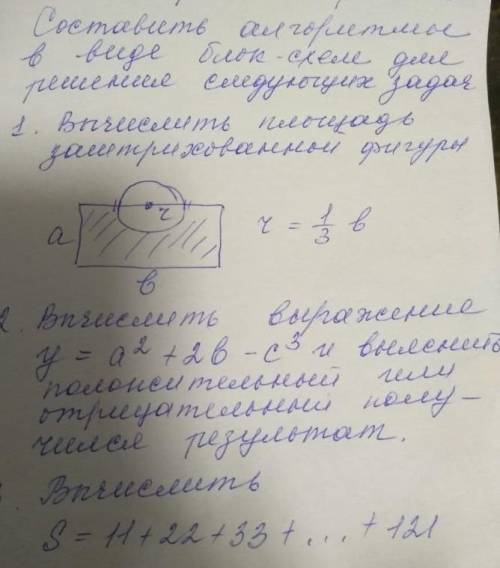 Составить алгоритмы
в виде блок-схем для
решения следующих задач
1. Вычислить площадь
заштрихованной фигуры
a r r = 1/3 b
b
2. Вычислить выражение
y = a² + 2b - c³ и выяснить
положительный или
отрицательный полу-
чился результат.
Вычислить
S = 11 + 22 + 33 + ... + 121